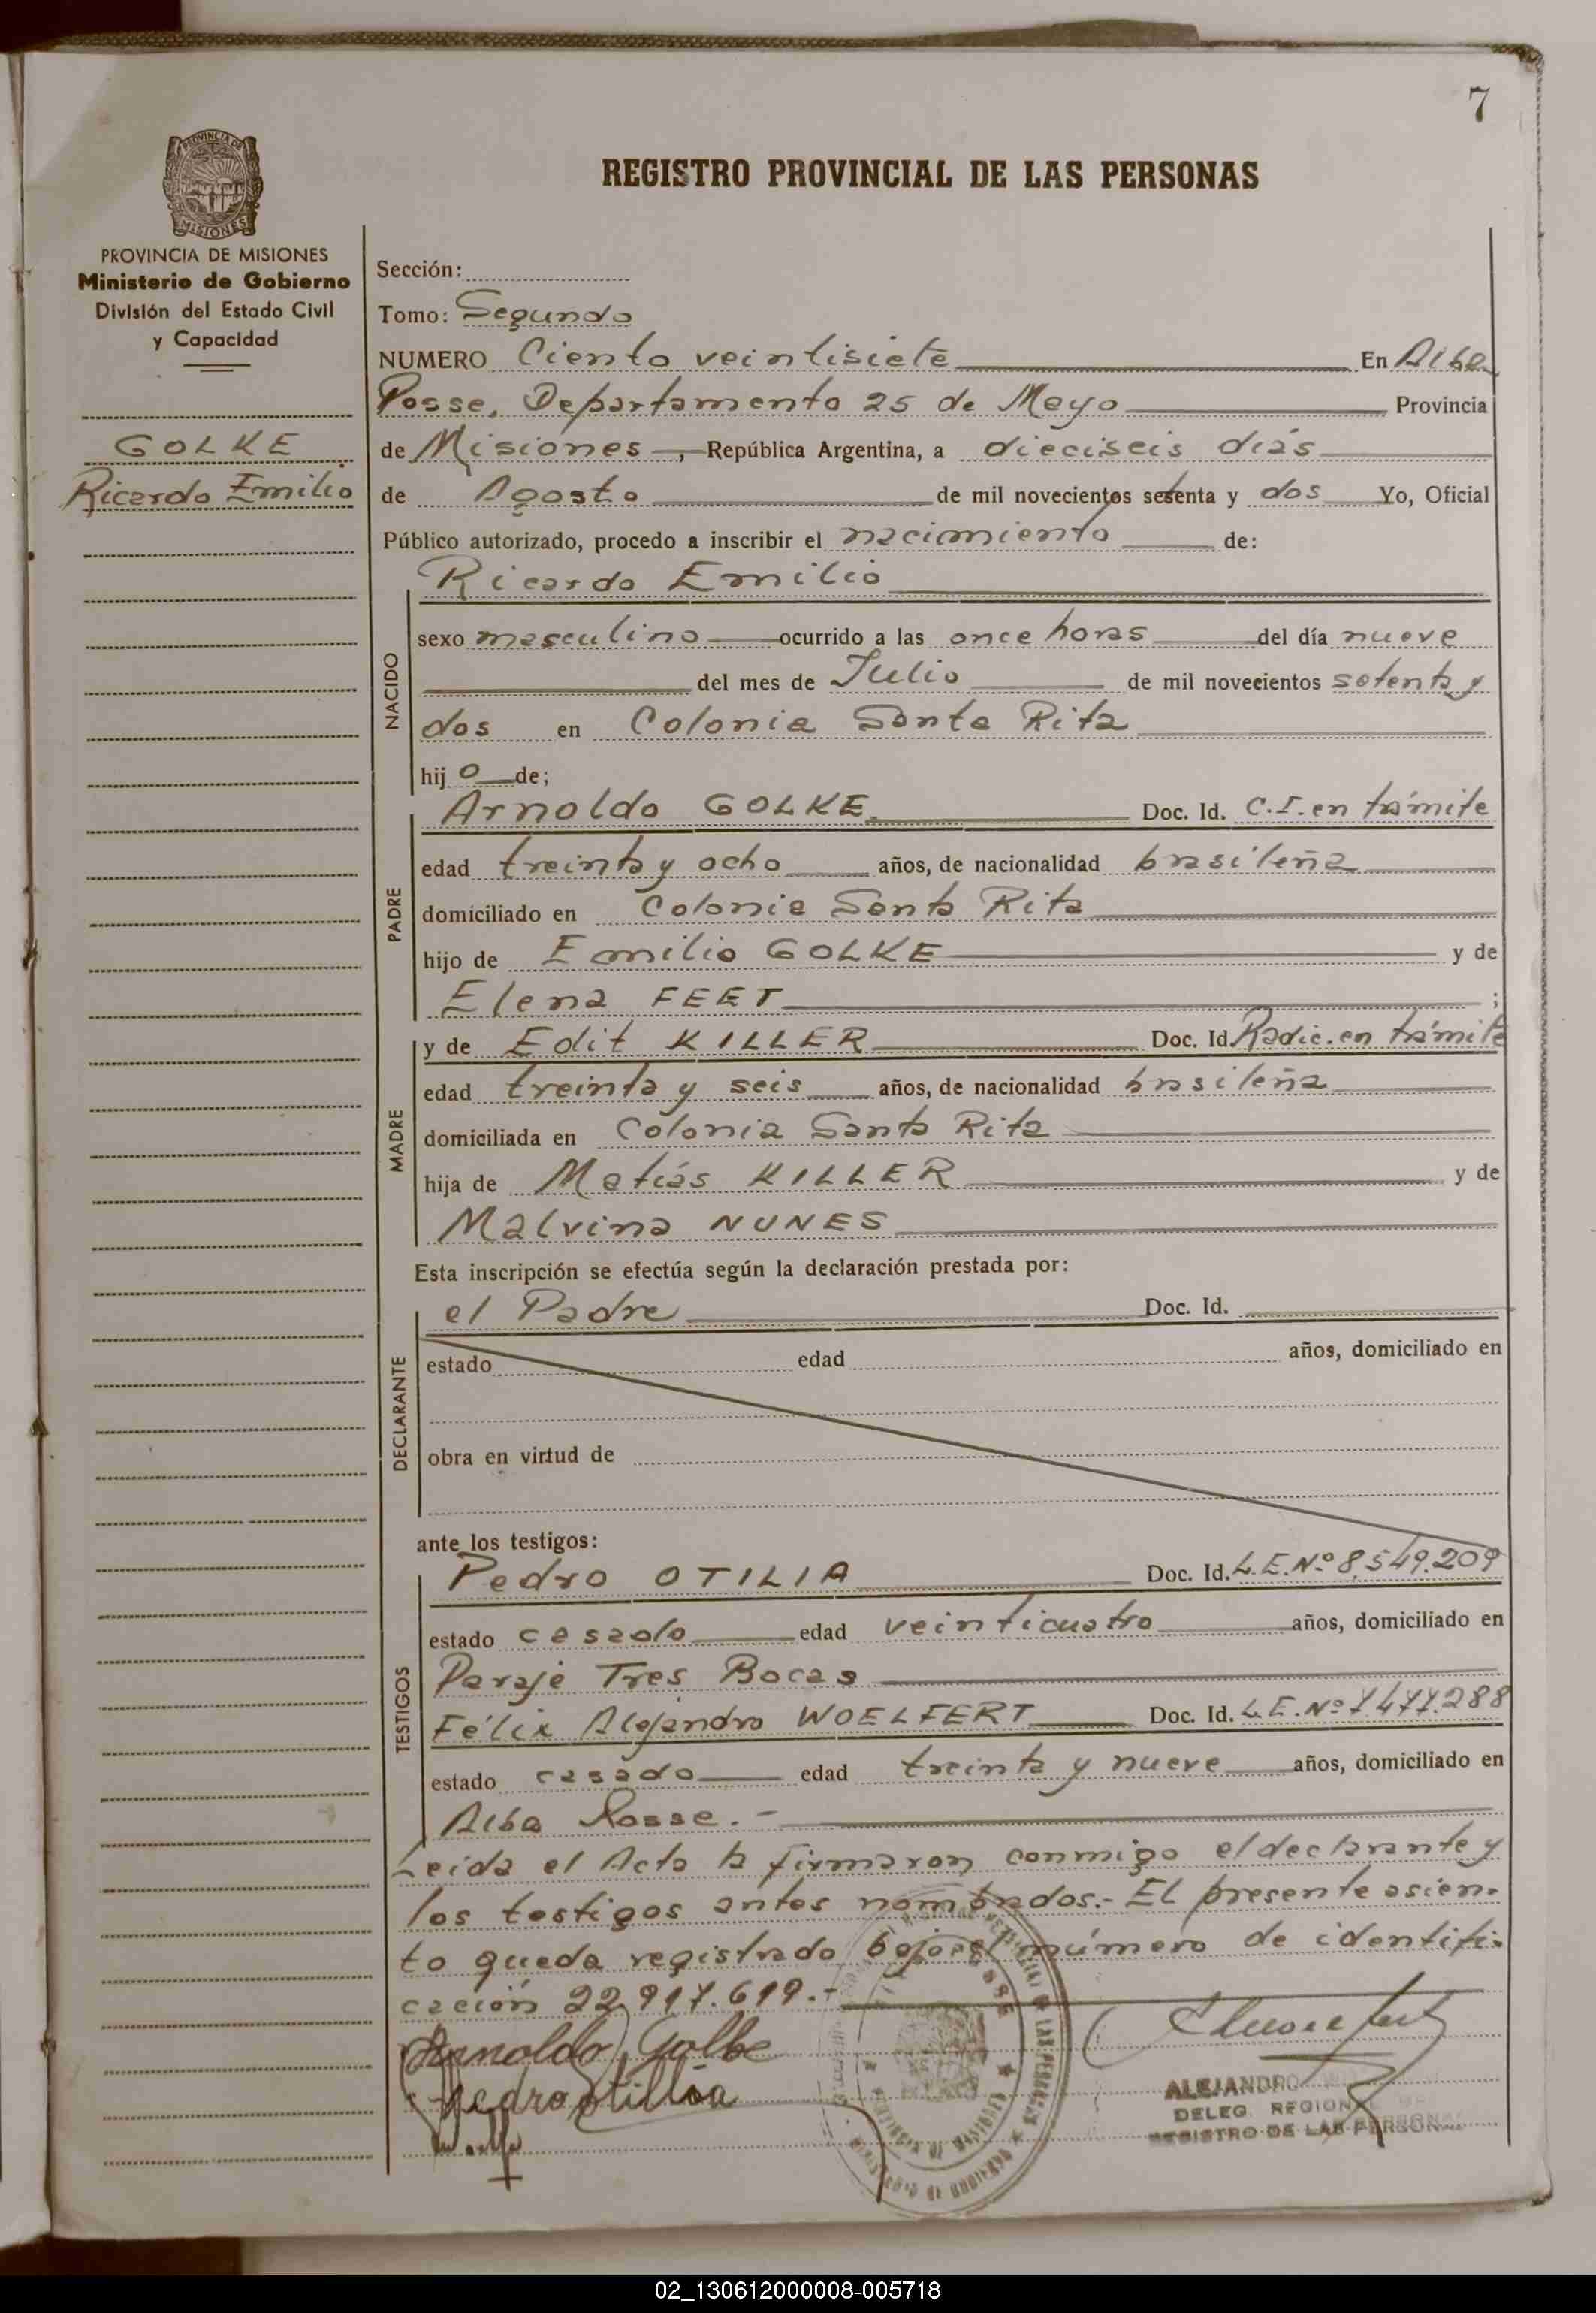 7
PROVINCIA DE
MISIONES
REGISTRO PROVINCIAL DE LAS PERSONAS
PROVINCIA DE MISIONES
Ministerio de Gobierno
División del Estado Civil
y Capacidad
GOLKE
Ricardo Emilio
Sección:
Tomo: Segundo
NUMERO Ciento veintisiete En Alba
Posse, Departamento 25 de Mayo Provincia
de Misiones, República Argentina, a dieciseis días
de Agosto de mil novecientos setenta y dos Yo, Oficial
Público autorizado, procedo a inscribir el nacimiento de:
Ricardo Emilio
NACIDO
sexo masculino ocurrido a las once horas del día nueve
del mes de Julio de mil novecientos setenta y
dos en Colonia Santa Rita
hijo de;
PADRE
Arnoldo GOLKE Doc. Id. C.I. en trámite
edad treinta y ocho años, de nacionalidad brasileña
domiciliado en Colonia Santa Rita
hijo de Emilio GOLKE y de
Elena FEET ;
MADRE
y de Edit KILLER Doc. Id. Radic. en trámite
edad treinta y seis años, de nacionalidad brasileña
domiciliada en Colonia Santa Rita
hija de Matías KILLER y de
Malvina NUNES
Esta inscripción se efectúa según la declaración prestada por:
DECLARANTE
el Padre Doc. Id.
estado edad años, domiciliado en
obra en virtud de
ante los testigos:
TESTIGOS
Pedro OTILIA Doc. Id. L.E. Nº 8.549.209
estado casado edad veinticuatro años, domiciliado en
Paraje Tres Bocas
Félix Alejandro WOELFERT Doc. Id. L.E. Nº 7.477.288
estado casado edad treinta y nueve años, domiciliado en
Alba Posse.-
Leída el Acta la firmaron conmigo el declarante y
los testigos antes nombrados.- El presente asien-
to queda registrado bajo el número de identifi-
cación 22.917.619.-
Arnoldo Golke
Pedro Otillia
ALEJANDRO
DELEG. REGIONAL
REGISTRO DE LAS PERSONAS
02_130612000008-005718